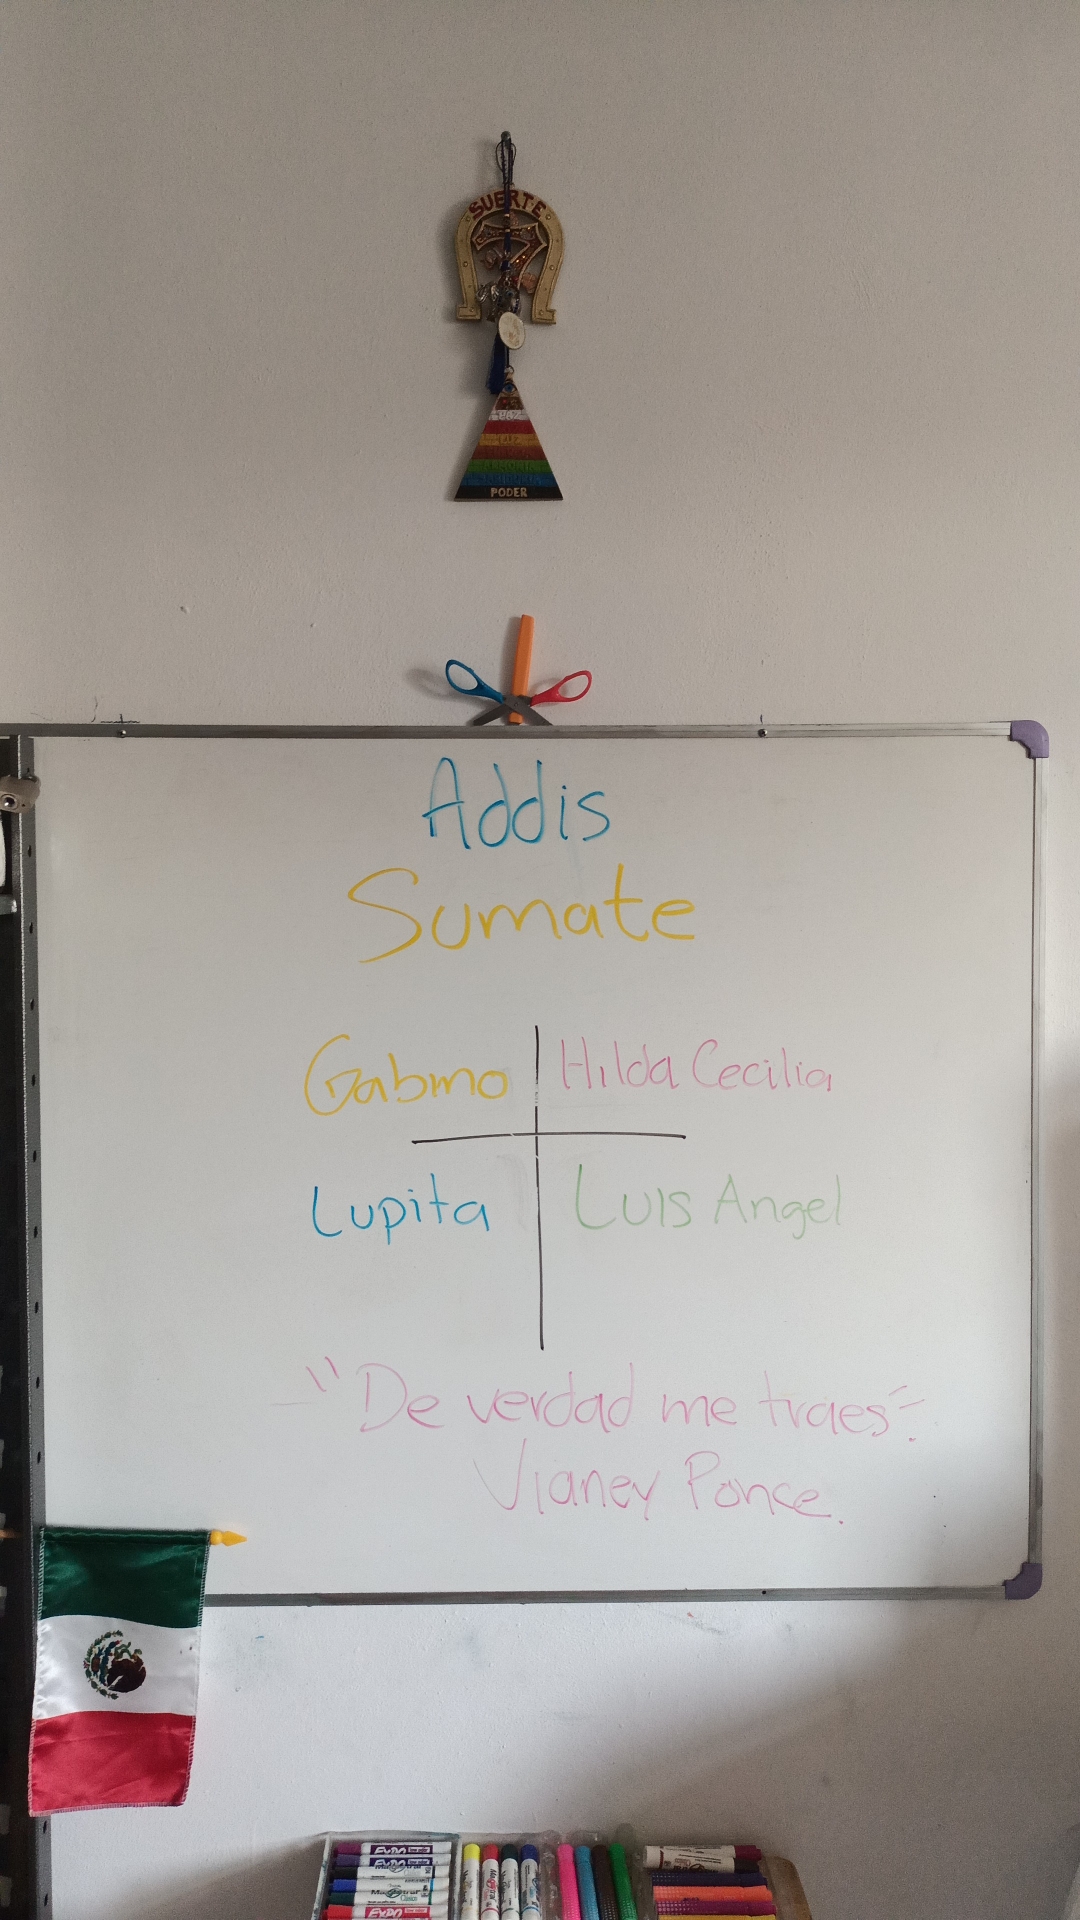 SUERTE
7
PAZ
LUZ
PODER
Addis
Sumate
Gabmo
Hilda Cecilia
Lupita
Luis Angel
-"De verdad me traes".
Vianey Ponce.
EXPO
EXPO
Magistral
EXPO